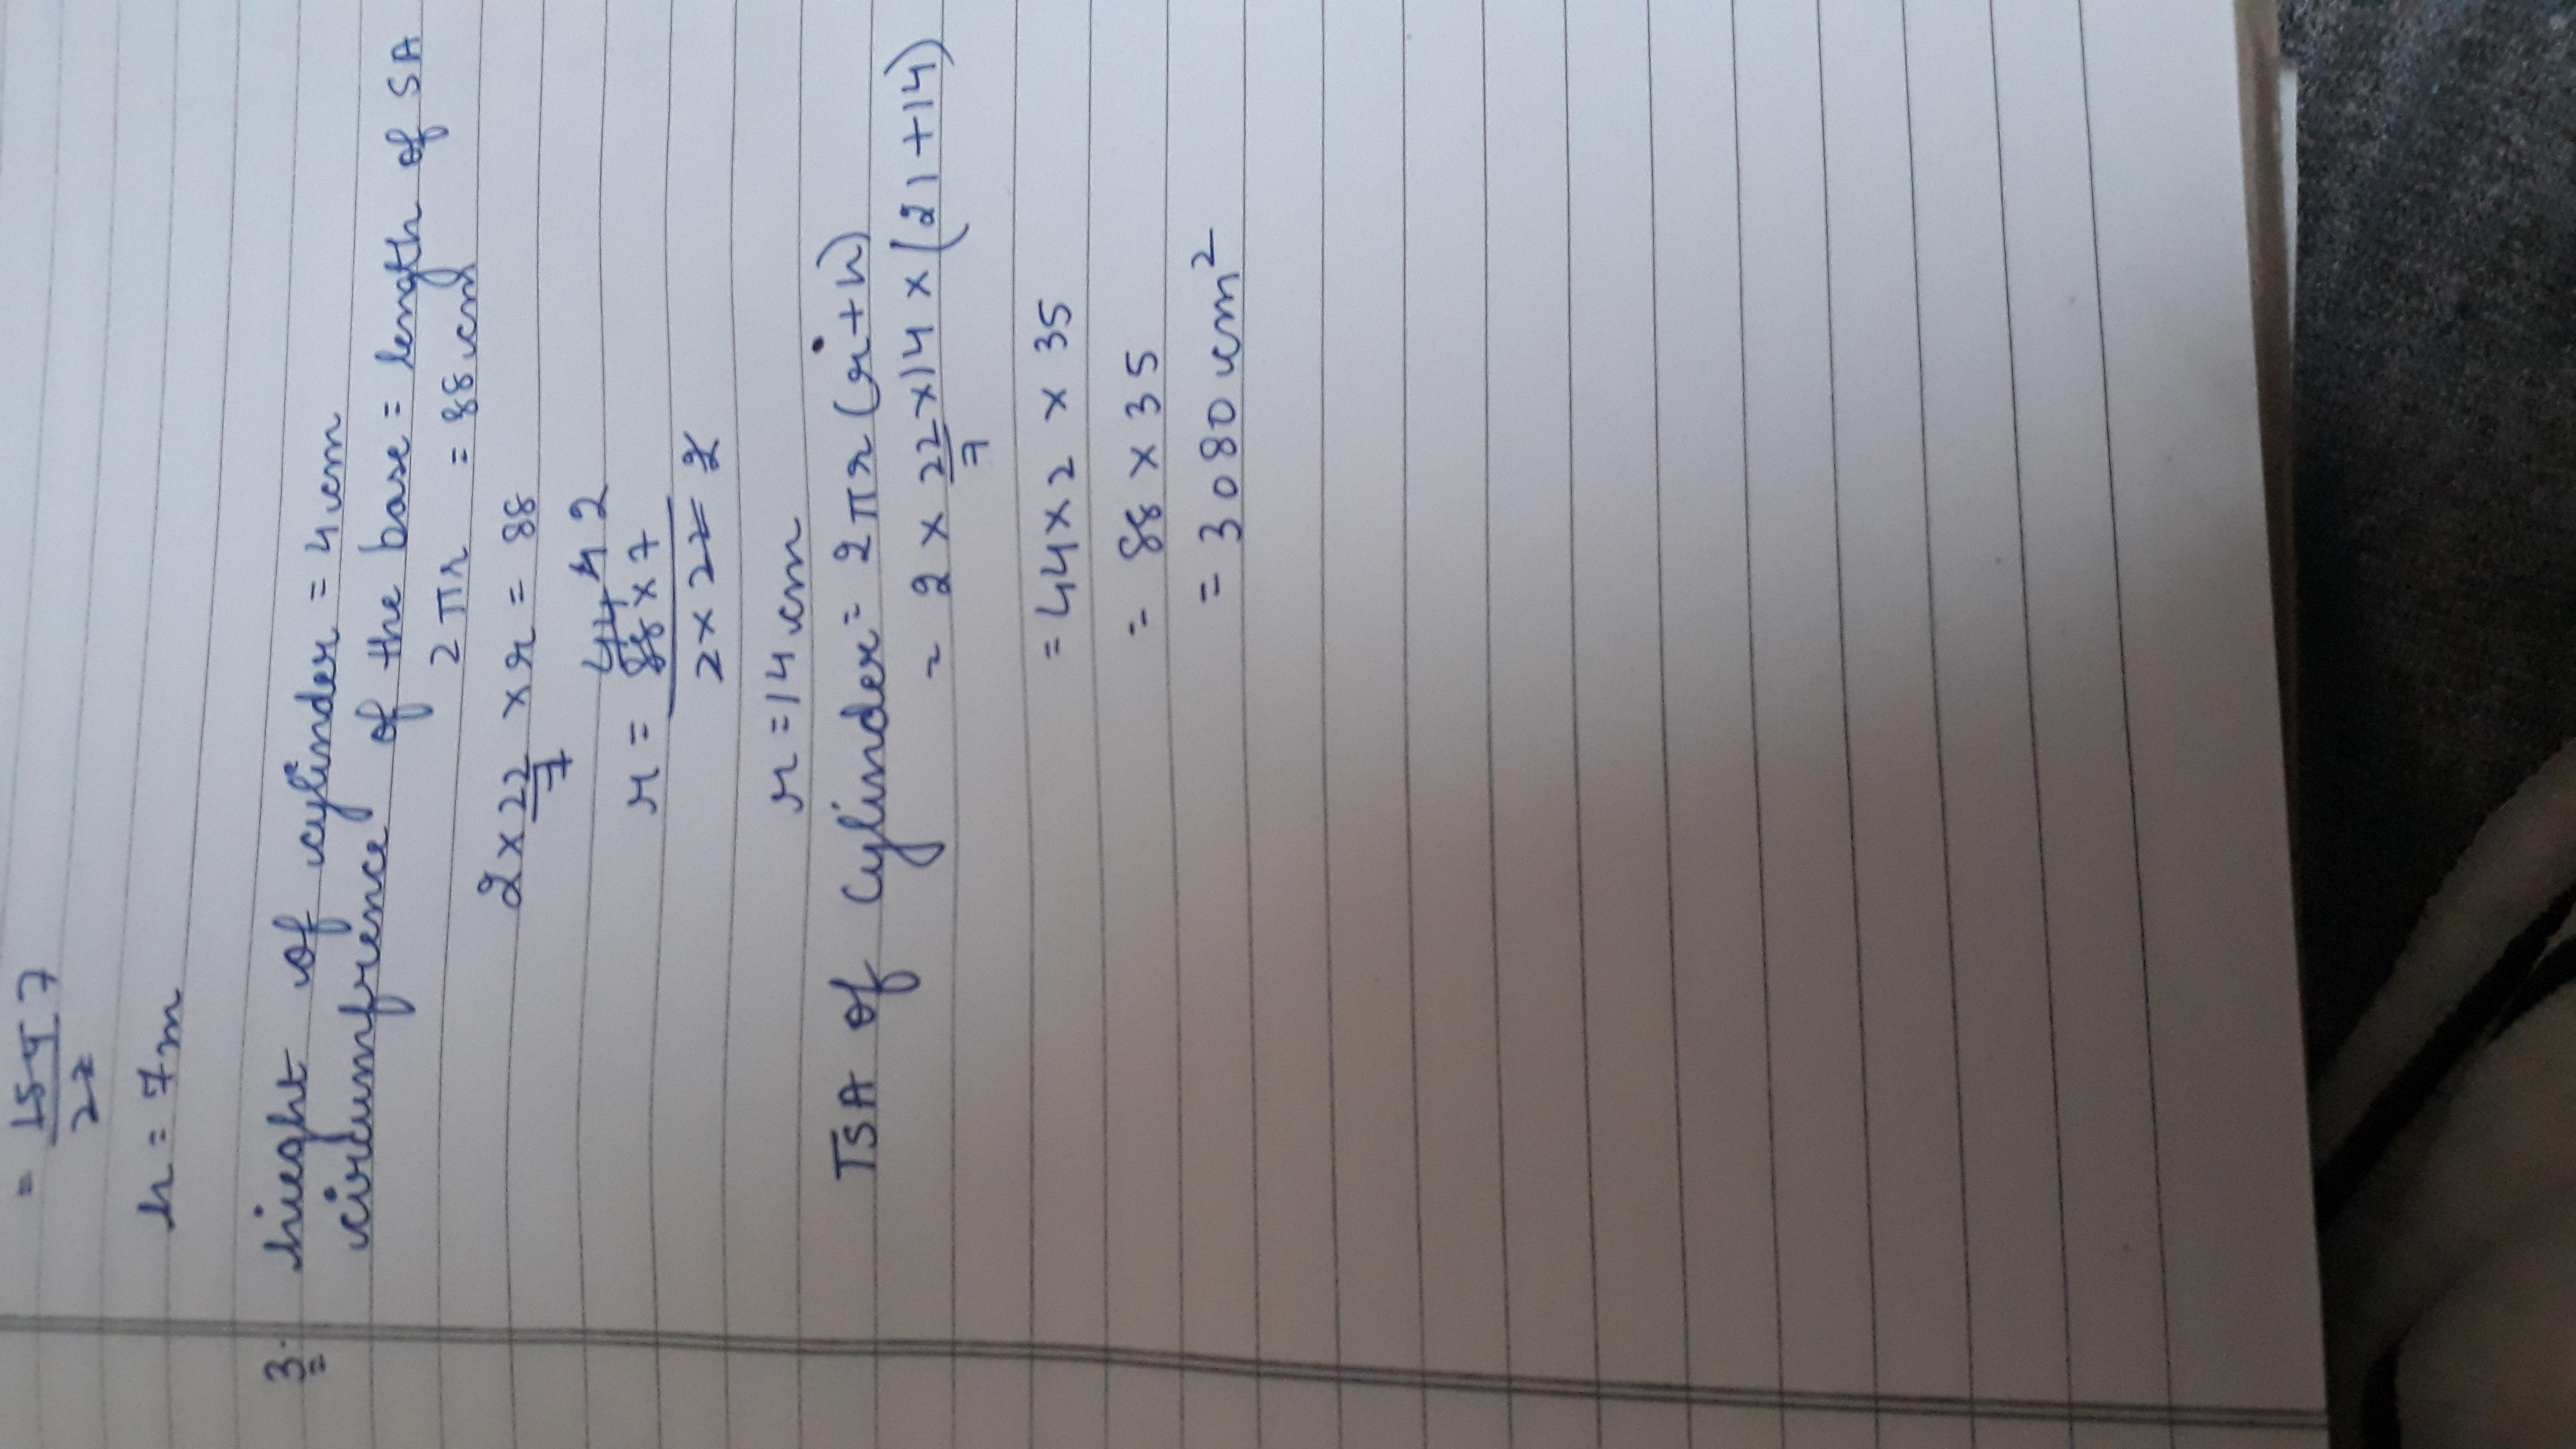 = 154 7
22
h = 7m
3. hieght of cylinder = 4 cm
circumfrence of the base = length of SA
2πr = 88 cm
2 x 22/7 x r = 88
44 4 2
r = 88 x 7
2 x 22 2
r = 14 cm
TSA of Cylinder = 2πr (r+h)
= 2 x 22/7 x 14 x (21 + 14)
= 44 x 2 x 35
= 88 x 35
= 3080 cm²